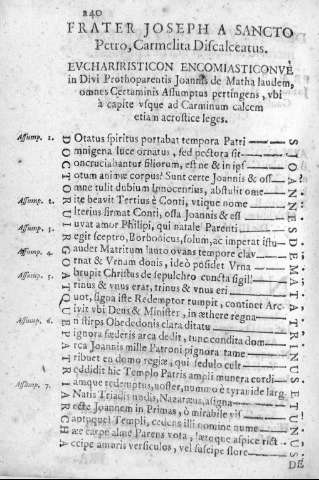 240
FRATER JOSEPH A SANCTO
Petro, Carmelita Discalceatus.
EVCHARIRISTICON ENCOMIASTICONVÈ
in Divi Prothoparentis Joannis de Matha laudem,
omnes Certaminis Assumptus pertingens, vbi
à capite vsque ad Carminum calcem
etiam acrostice leges.
Assump. 1. DOtatus spiritus portabat tempora Patri S
Omnigena luce ornatus, sed pectora sit I
Concruciabantur filiorum, est ne & in ips O
Totum animæ corpus? Sunt certe Joannis & oss A
Omne tulit dubium Ipnocentius, abstulit ome N
Assump. 2. Rite beavit Tertius è Conti, vtique nome N
Vlterius firmat Conti, ossa Joannis & es
Assump. 3. Iuvat amor Philipi, qui natale Parenti S
Regit sceptro, Borbonicus, solum, ac imperat istu
Assump. 4. Gaudet Matritum lauto ovans tempore clav
Ornat & Vrnam donis, ideò posidet Vrna
Assump. 5. Abrupit Christus de sepulchro cuncta sigill A
Trinus & vnus erat, trinus & vnus eri T
Quot, signa iste Redemptor rumpit, continet Arc
Quivit vbi Deus & Minister, in æthere regna
Assump. 6. En stirps Obededonis clara ditatu
ignora fæderis arca dedit, tunc condita dom
rca Joannis mille Patroni pignora tame
Tribuet en domo regiæ, qui sedulo cult
Reddidit hic Templo Patris ampli munera cordi
Assump. 7. Iamque redemptus, noster, nummo è tyranide larg
Natis Triadis nodis, Nazaræus, asigna
ecte Joannem in Primas, ò mirabile vis
aptoque! Templi, cedens illi nomine nume
æ carpe alme Parens vota, lætoque aspice rict
Accipe amoris versiculos, vel suscipe flore S
DE